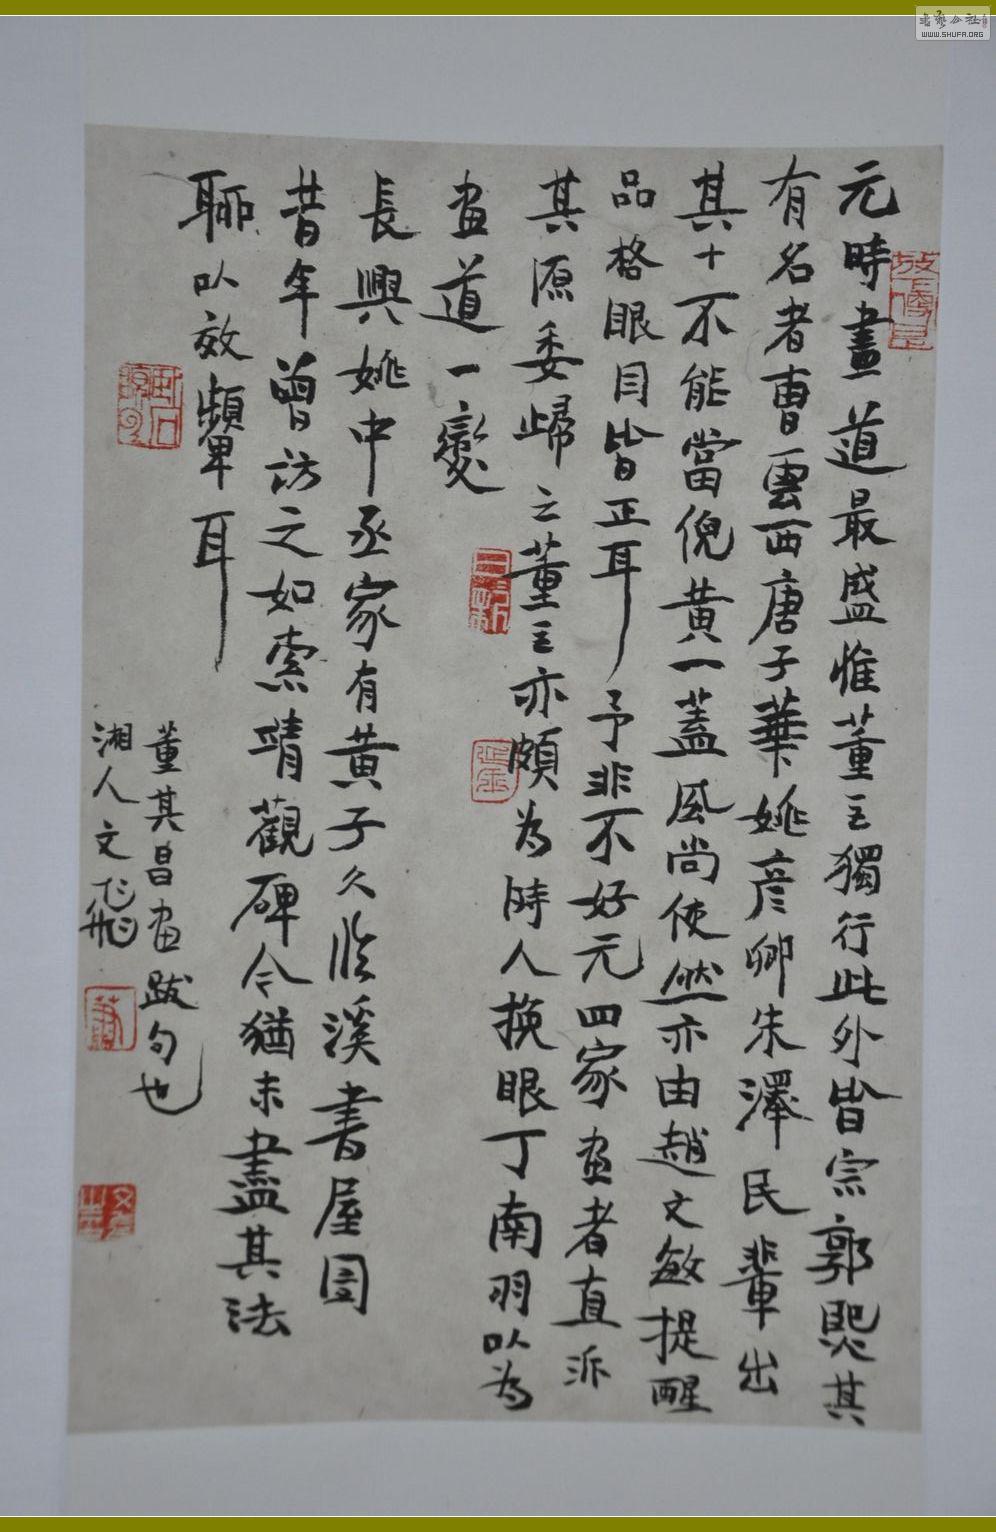 元時畫道最盛惟董巨獨行此外皆宗郭熙其
有名者曹雲西唐子華姚彦卿朱澤民輩出
其十不能當倪黃一蓋風尚使然亦由趙文敏提醒
品格眼目皆正耳予非不好元四家画者直泝
其源委歸之董巨亦頗為時人換眼丁南羽以為
画道一變
長興姚中丞家有黃子久臨溪書屋圖
昔年曾訪之如索靖觀碑今猶未盡其法
聊以效顰耳
董其昌画跋句也
湘人文飛
書藝公社
WWW.SHUFA.ORG